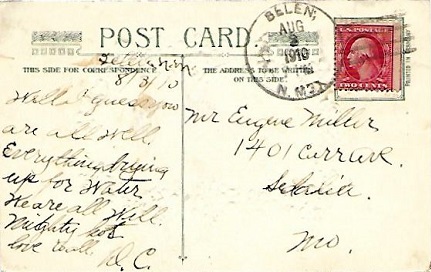 POST CARD
THIS SIDE FOR CORRESPONDENCE
THE ADDRESS TO BE WRITTEN ON THIS SIDE.
BELEN,
AUG
1910
N.MEX.
U.S. POSTAGE
TWO CENTS
8/3/10
Well I guess you
are all well.
Everything drying
up for water
We are all well.
Mighty hot
love to all.
D.C.
Mr Eugene Miller
1401 Carr Ave.
Sedalia.
Mo.